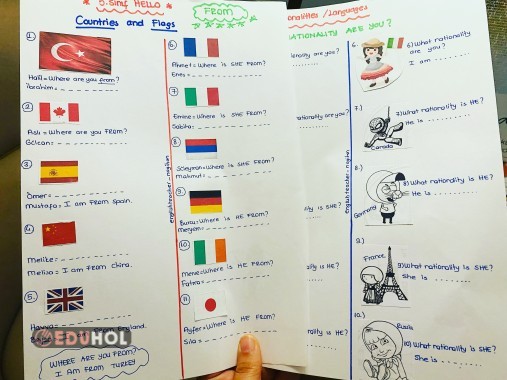 5.Sınıf HELLO
Countries and Flags
FROM
1
Halil = Where are you from?
İbrahim =
2
Aslı = Where are you From?
Gülcan =
3
Ömer =
Mustafa = I am From Spain.
4
Melike =
Melisa = I am From China.
5.
From England.
WHERE ARE YOU FROM?
I AM FROM TURKEY
englishteacher_nagihan
6
Ahmet = Where is SHE FROM?
Enes =
7
Emine = Where is SHE FROM?
Sabiha =
8
Süleyman = Where is SHE FROM?
Mahmut =
9
Burcu = Where is HE FROM?
Meryem =
10
Where is HE FROM?
Fatma =
11
Ayfer = Where is HE FROM?
Sıla =
onalities / Languages
NATIONALITY ARE YOU?
ionality are you?
nationality are you?
ality is SHE?
ality is HE?
nality is HE?
englishteacher_nagihan
6.
6) What nationality are you?
I am
7.)
7) What nationality is HE?
He is
Canada
8.)
8) What nationality is HE?
He is
Germany
9.)
France
9) What nationality is SHE?
She is
10.)
Russia
10) What nationality is SHE?
She is
EDUHOL